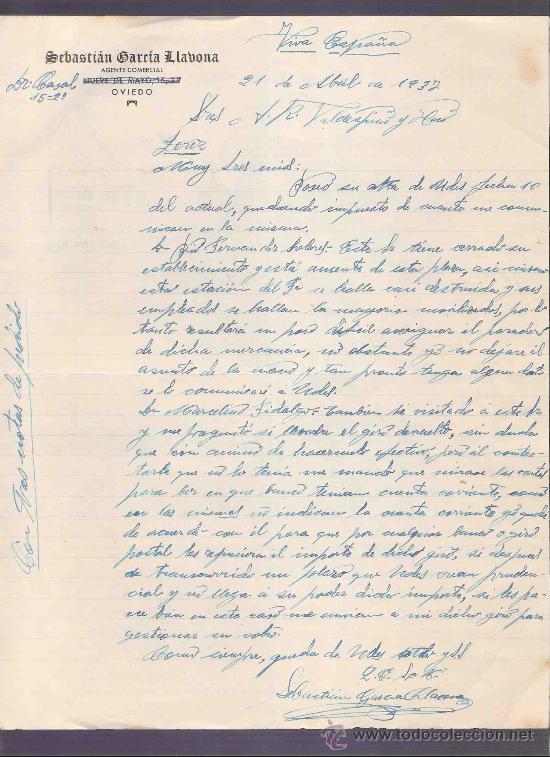 Viva España
Sebastián García Llavona
AGENTE COMERCIAL
NUEVE DE MAYO, 15-3.º
OVIEDO
Dr. Casal
15-2º
21 de Abril de 1937
Sres A. R. Valdespino y Hno
Jerez
Muy Sres mios:
Poseo su atta de Udes fecha 10
del actual, quedando impuesto de cuanto me comu-
nican en la misma.
Fernandez Este Sr tiene cerrado su
establecimiento y está ausente de esta plaza, asi mismo
esta estación del se halla casi destruida y sus
empleados se hallan la mayoria movilizados, por lo
tanto resultará un poco dificil averiguar el paradero
de dicha mercancia, no obstante yo no dejaré el
asunto de la mano y tan pronto tenga algun dato
se lo comunicaré a Udes.
Dn Marcelino Fidalgo- También he visitado a este Sr
y me preguntó si el giro devuelto, sin duda
que con animo de hacermelo efectivo, pero al contes-
tarle que no lo tenia me mando que mirase las cartas
para ver en que banco tenian cuenta corriente, como
en las mismas no indican la cuenta corriente quedé
de acuerdo con él para que por cualquier banco o giro
postal les remisiera el importe de dicho giro, si despues
de transcurrido un plazo que Udes crean pruden-
cial y no llega a su poder dicho importe, si les pa-
rece bien en este caso me envien a mi dicho giro para
gestionar su cobro.
Como siempre, queda de Udes atto y s.s.
Sebastián García Llavona
Con tres notas de pedido
www.todocoleccion.net